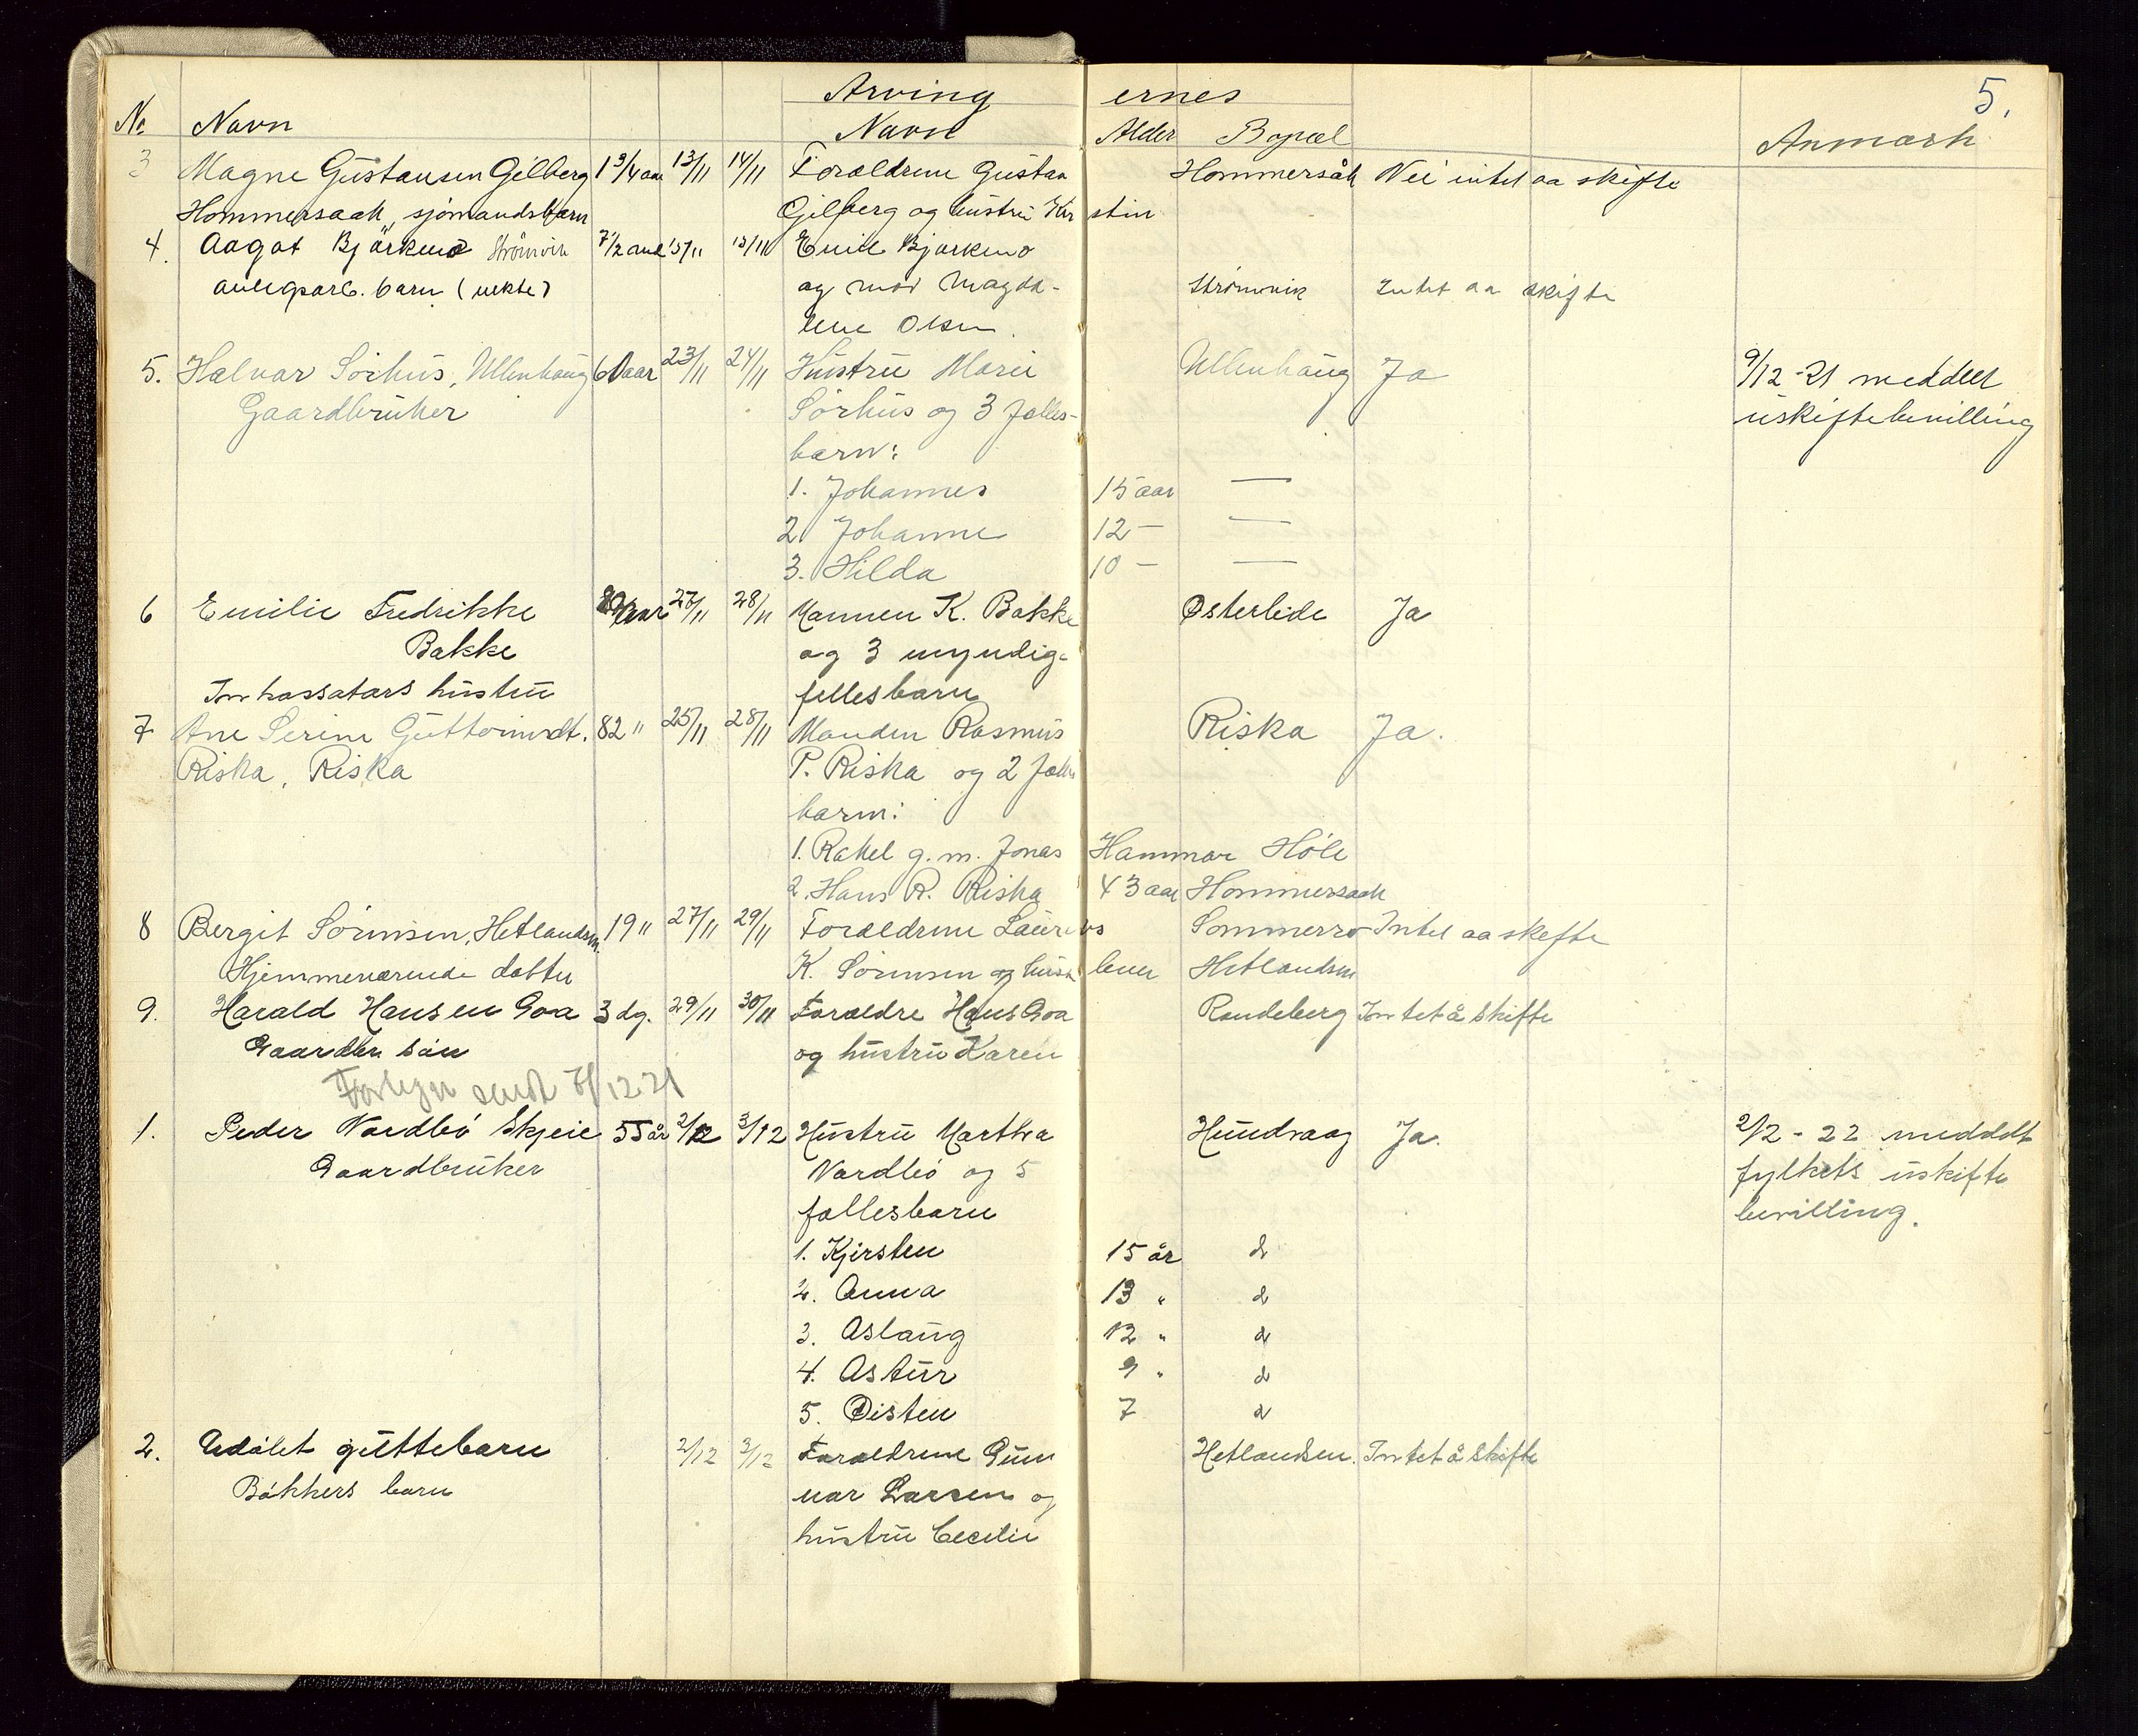 5.
Arving ernes
No Navn Navn Alder Bopæl Anmærk
3 Magne Gustavsen Gilberg 1 3/4 aar 13/11 14/11 Forældrene Gustav Hommersåk Nei intet aa skifte
Hommersaak, sjömandsbarn Gilberg og hustru Kirstin
4. Aagot Bjørkmo Strömvik 7 1/2 15/11 15/11 Emil Bjørkmo
anlegsarb. barn (uekte) og mor Magda- Strömvik Intet aa skifte
lene Olsen.
5. Halvar Sörhus, Ullenhaug 60 aar 23/11 24/11 Hustru Marie Ullenhaug Ja 9/12-21 meddelt
Gaardbruker Sörhus og 3 fælles- uskiftebevilling
barn:
1. Johannes 15 aar —
2. Johanne 12 — —
3. Hilda 10 — —
6 Emilie Fredrikke aar 27/11 28/11 Mannen K. Bakke Østerlide Ja
Bakke og 3 umyndig-
Inkassatørs hustru fellesbarn
7 Ane Serine Guttormsdt. 82 " 25/11 28/11 Manden Rasmus Riska Ja.
Riska, Riska P. Riska og 2 fælles
barn:
1. Rakel g. m. Jonas Hammar Höle
2. Hans R. Riska 43 aar Hommersaak
8 Bergit Sörensen, Hetlandsm. 19 " 27/11 29/11 Forældrene Laurits Sommerro Intet aa skifte
Hjemmeværende datter K. Sörensen og Hetlandsm
9. Harald Hansen Goa 3 dg. 29/11 30/11 Forældre Hans Goa Randeberg Intet å skifte
Gaardbr. sön og hustru Karen
sendt 7/12 21
1. Peder Nordbö Skjeie 55 år 2/12 3/12 Hustru Martha Hundvaag Ja. 2/2 - 22 meddelt
Gaardbruker Nordbö og 5 fylkets uskifte
fællesbarn bevilling.
1. Kjirsten 15 år d
2. Anna 13 " d
3. Aslaug 12 " d
4. Astur 9 " d
5. Øisten 7 d
2. Udöbt guttebarn 2/12 3/12 Forældrene Gun Hetlandsm. Intet å skifte
Bökkers barn nar Larsen og
hustru Cecilie